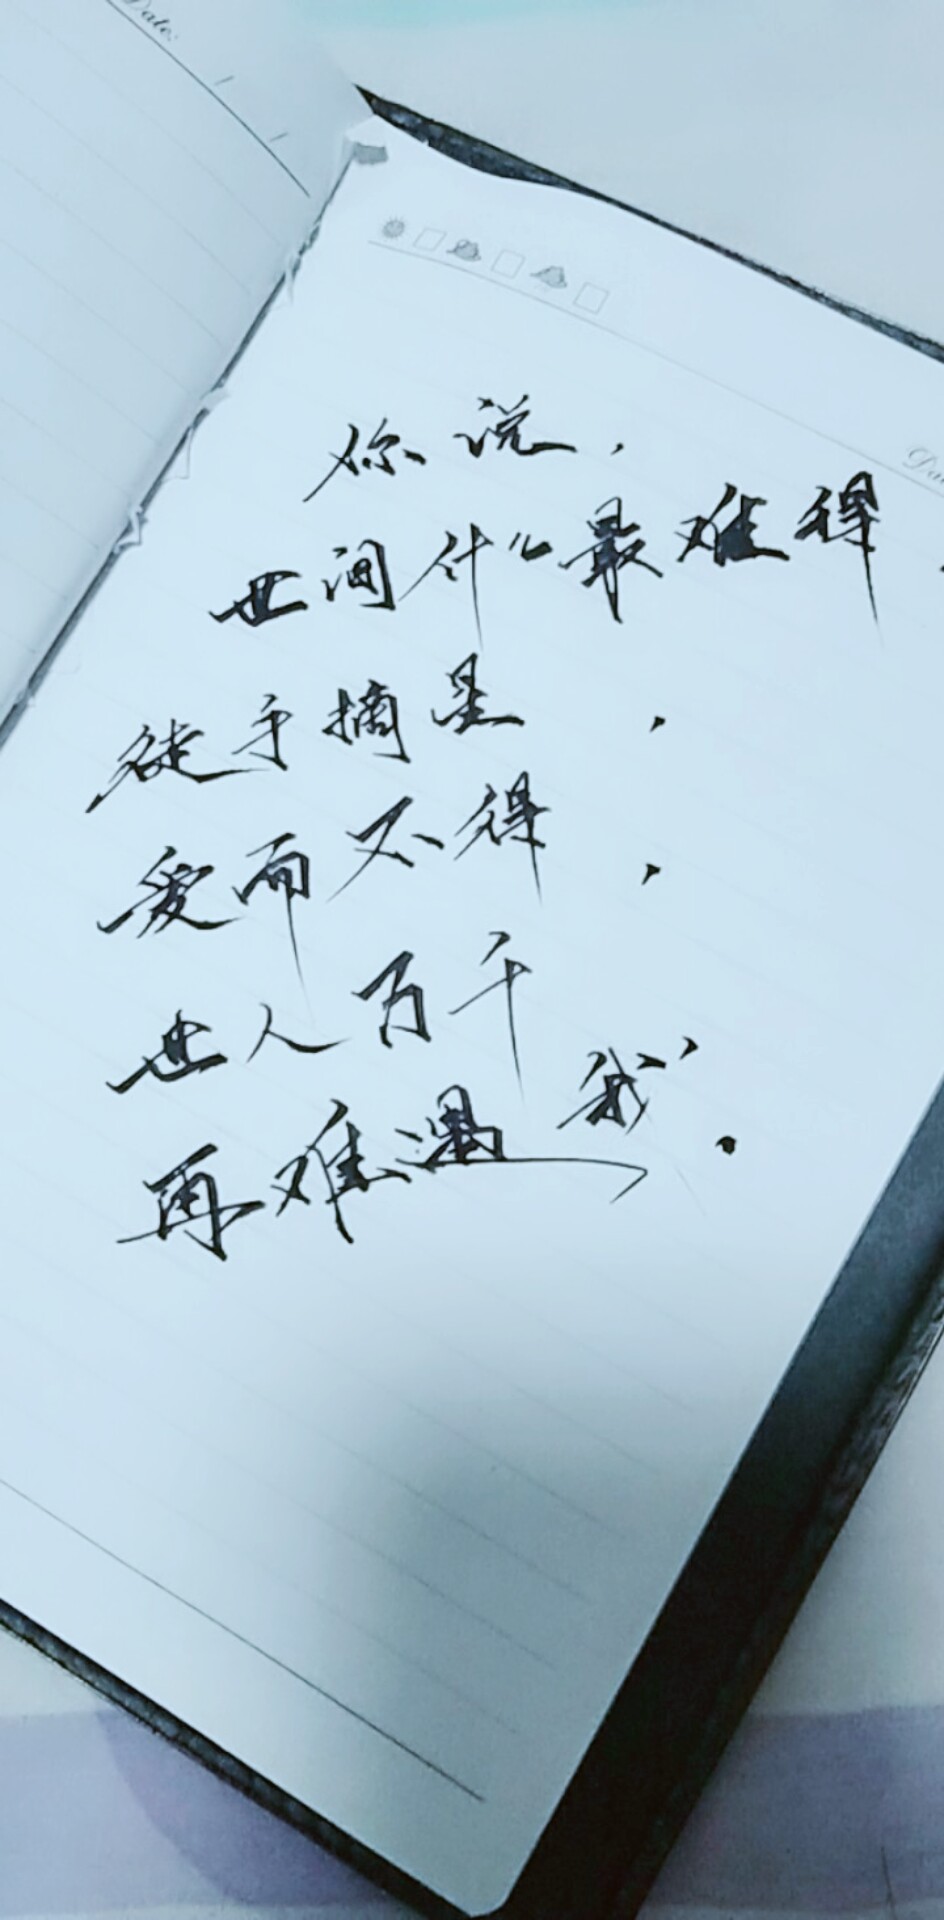 Date:
你说，
世间什么最难得
徒手摘星，
爱而不得，
世人万千
再难遇我。